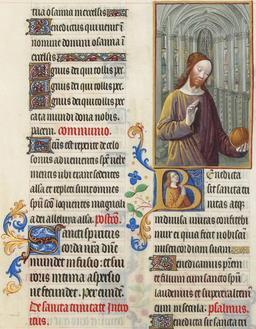 tua osanna in excelsis
Benedictus qui uenit in
nomine domini osanna in
excelsis
Agnus dei qui tollis pec
Agnus dei qui tollis pec
Agnus dei qui tollis pec
cata mundi dona nobis
pacem. communio.
Factus est repente de celo
sonus aduenientis spūs uehe
mentis ubi erant sedentes
alla et repleti sunt omnes
spū scō loquentes magnali
a dei alleluya alla. postcō.
Sancti spiritus
corda nr̄a dn̄e
mundet infusio: et sui
roris intima aspersio
ne fecundet. per eundē.
De sancta trinitate Intro
itus.
Benedicta
sit sancta tri
nitas atqꝫ
indiuisa unitas confitebi
mur ei quia fecit nobiscū
misericordiam suam
Benedicamus patrem
et filium cum sancto spū
laudemus et superexaltem
eum in secula. psalmus.
Benedicta sit sancta tri